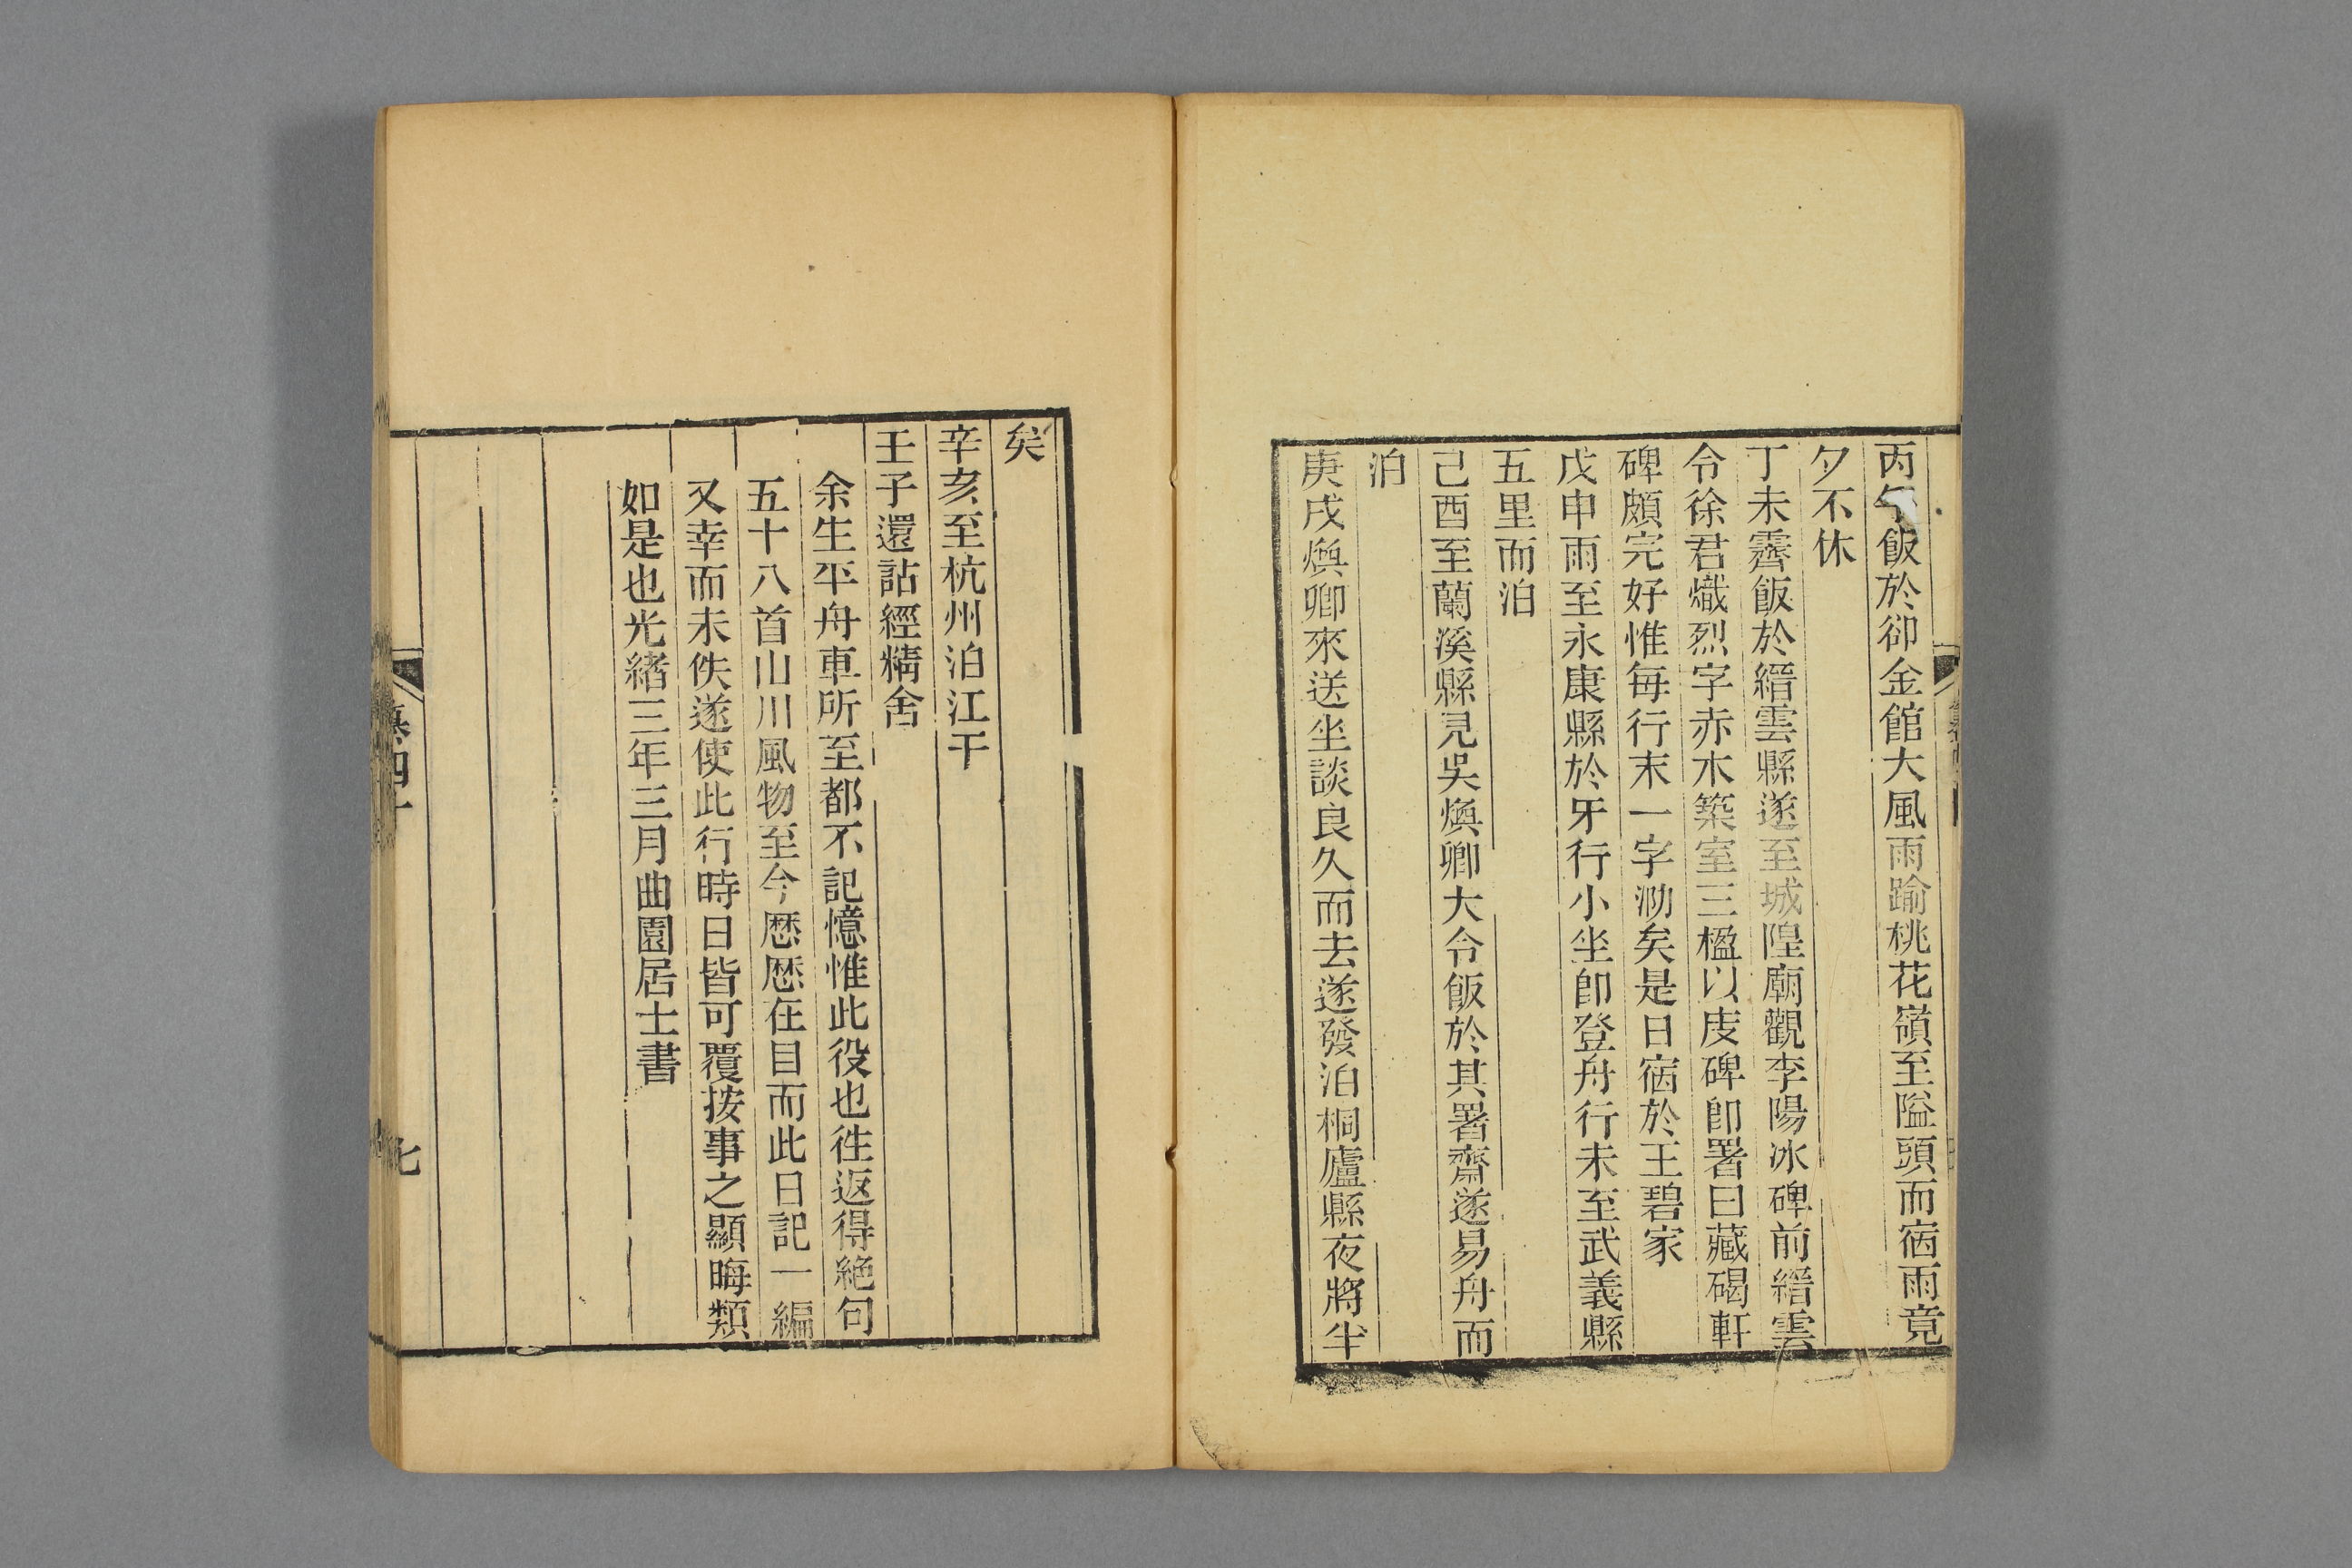 丙午飯於卻金館大風雨踰桃花嶺至隘頭而宿雨竟
夕不休
丁未霽飯於縉雲縣遂至城隍廟觀李陽冰碑前縉雲
令徐君熾烈字赤木築室三楹以庋碑卽署曰藏碣軒
碑頗完好惟每行末一字泐矣是日宿於王碧家
戊申雨至永康縣於牙行小坐卽登舟行未至武義縣
五里而泊
己酉至蘭溪縣見吳煥卿大令飯於其署齋遂易舟而
泊
庚戌煥卿來送坐談良久而去遂發泊桐廬縣夜將半
矣
辛亥至杭州泊江干
壬子還詁經精舍
余生平舟車所至都不記憶惟此役也往返得絶句
五十八首山川風物至今歷歷在目而此日記一編
又幸而未佚遂使此行時日皆可覆按事之顯晦類
如是也光緒三年三月曲園居士書
纂四十
七